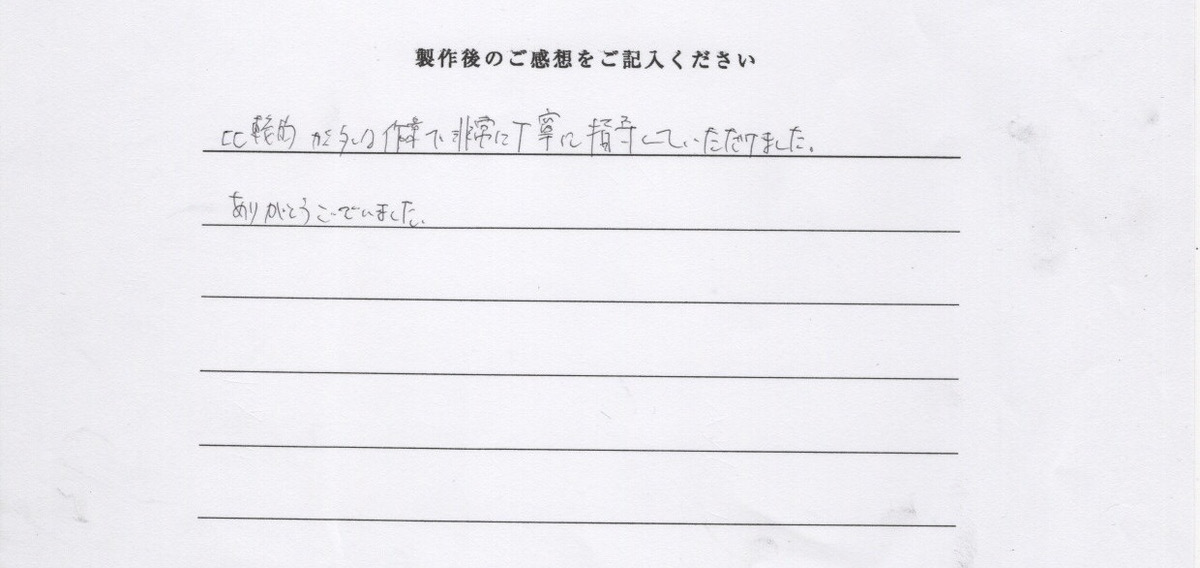 製作後のご感想をご記入ください
比較的 作業で非常に丁寧に指導していただけました。
ありがとうございました。